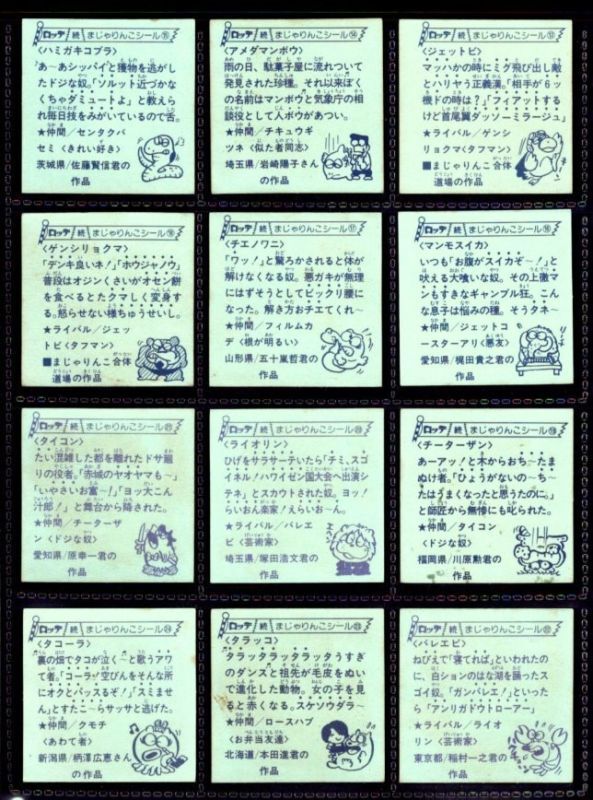 ロッテ 続 まじゃりんこシール
〈ハミガキコブラ〉
「あ〜あシッパイ」と獲物を逃が
したドジな奴。「ソルット近づかな
くちゃダミュートよ」と教えら
れ毎日技をみがいているので舌。
★仲間/センタクバ
セミ〈きれい好き〉
茨城県/佐藤賢信君の
作品
ロッテ 続 まじゃりんこシール
〈アメダマンボウ〉
雨の日、駄菓子屋に流れついて
発見された珍種。それ以来ぼく
の名前はマンボウと気象庁の相
談役として人ボウがあつい。
★仲間/チキュウギ
ツネ〈似た者同志〉
埼玉県/岩崎陽子さん
の作品
ロッテ 続 まじゃりんこシール
〈ジェットビ〉
マッハかの時にミグ飛び出し敵
とハリヤう正義漢。「相手が6
機ドの時は?」「フィアットする
けど首尾翼ダッソーミラージュ」
★ライバル/ゲンシ
リョクマ〈タフマン〉
■まじゃりんこ合体
道場の作品
ロッテ 続 まじゃりんこシール
〈ゲンシリョクマ〉
「デンキ良いネ!」「ホウジャノウ」
普段はオジンくさいがオセン餅
を食べるとたクマしく変身す
る。怒らせない様ちゅうせいし。
★ライバル/ジェッ
トビ〈タフマン〉
■まじゃりんこ合体
道場の作品
ロッテ 続 まじゃりんこシール
〈チエノワニ〉
「ワッ!」と驚ろかされると体が
解けなくなる奴。悪ガキが無理
にはずそうとしてビックリ腰に
なった。解き方おチエてくれ〜
★仲間/フィルムカ
デ〈根が明るい〉
山形県/五十嵐哲君の
作品
ロッテ 続 まじゃりんこシール
〈マンモスイカ〉
いつも「お腹がスイカゾ〜!」と
吠える大喰いな奴。その上激マ
ンもすきなギャンブル狂。こん
な息子は悩みの種。そうタネ〜
★仲間/ジェットコ
ースターアリ〈悪友〉
愛知県/梶田貴之君の
作品
ロッテ 続 まじゃりんこシール
〈タイコン〉
たい混雑した都を離れたドサ蹴
りの役者。「赤城のヤオヤマも〜」
「いやさいお富〜!」「ヨッ大こん
汁郎!」と舞台から降された。
★仲間/チーターザ
ン〈ドジな奴〉
愛知県/原幸一君の
作品
ロッテ 続 まじゃりんこシール
〈ライオリン〉
ひげをサラサーテいたら「チミ、スゴ
イネル!ハワイゼン国大会へ出演シ
テネ」とスカウトされた奴。ヨッ!
らいおん楽家!えらいお〜ん。
★ライバル/バレエ
ビ〈芸術家〉
埼玉県/塚田浩文君の
作品
ロッテ 続 まじゃりんこシール
〈チーターザン〉
あーアッ!と木からおち〜たま
ぬけ者。「ひょうがないの〜ち〜
たはうまくなったと思うたのに。」
と師匠から無惨にも叱られた。
★仲間/タイコン
〈ドジな奴〉
福岡県/川原勲君の
作品
ロッテ 続 まじゃりんこシール
〈タコーラ〉
裏の畑でタコが泣く〜と歌うアワ
て者。「コーラ!空びんをそんな所
にオクとパッスるぞ!」「スミませ
ん」とすたこらサッサと逃げた。
★仲間/クモチ
〈あわて者〉
新潟県/柄澤広恵さん
の作品
ロッテ 続 まじゃりんこシール
〈タラッコ〉
タラッタラッタラッタうすぎ
のダンスと祖先が毛皮をぬい
で進化した動物。女の子を見
ると赤くなる。スケソウダラ〜
★仲間/ロースハブ
〈お弁当友達〉
北海道/本田進君の
作品
ロッテ 続 まじゃりんこシール
〈バレエビ〉
ねびえで「寝てれば」といわれたの
に、白ションのはな湖を踊ったス
ゴイ奴。「ガンバレエ!」といった
ら「アンリガドウトローアー」
★ライバル/ライオ
リン〈芸術家〉
東京都/稲村一之君の
作品